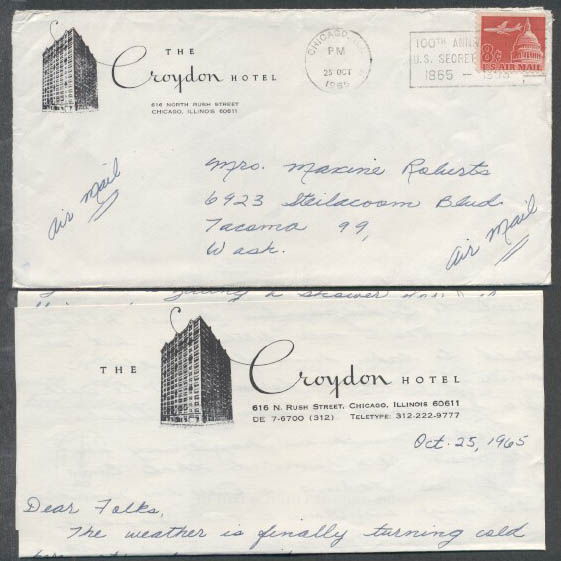 THE
Croydon HOTEL
616 NORTH RUSH STREET
CHICAGO, ILLINOIS 60611
CHICAGO,
PM
25 OCT
1965
100TH ANN
U.S. SECRET
1865 –
8¢
US AIR MAIL
air mail
Mrs. Maxine Roberts
6923 Steilacoom Blvd.
Tacoma 99,
Wash.
air mail
a shower
THE
Croydon HOTEL
616 N. RUSH STREET, CHICAGO, ILLINOIS 60611
DE 7-6700 (312) TELETYPE: 312-222-9777
Oct. 25, 1965
Dear Folks,
The weather is finally turning cold